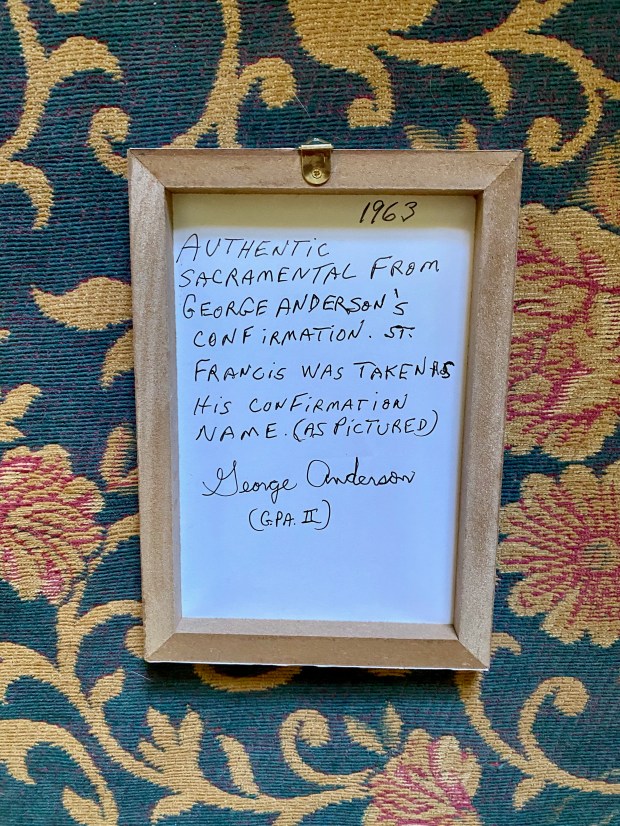 1963
AUTHENTIC
SACRAMENTAL FROM
GEORGE ANDERSON'S
CONFIRMATION. ST.
FRANCIS WAS TAKEN AS
HIS CONFIRMATION
NAME. (AS PICTURED)
George Anderson
(GPA. II)